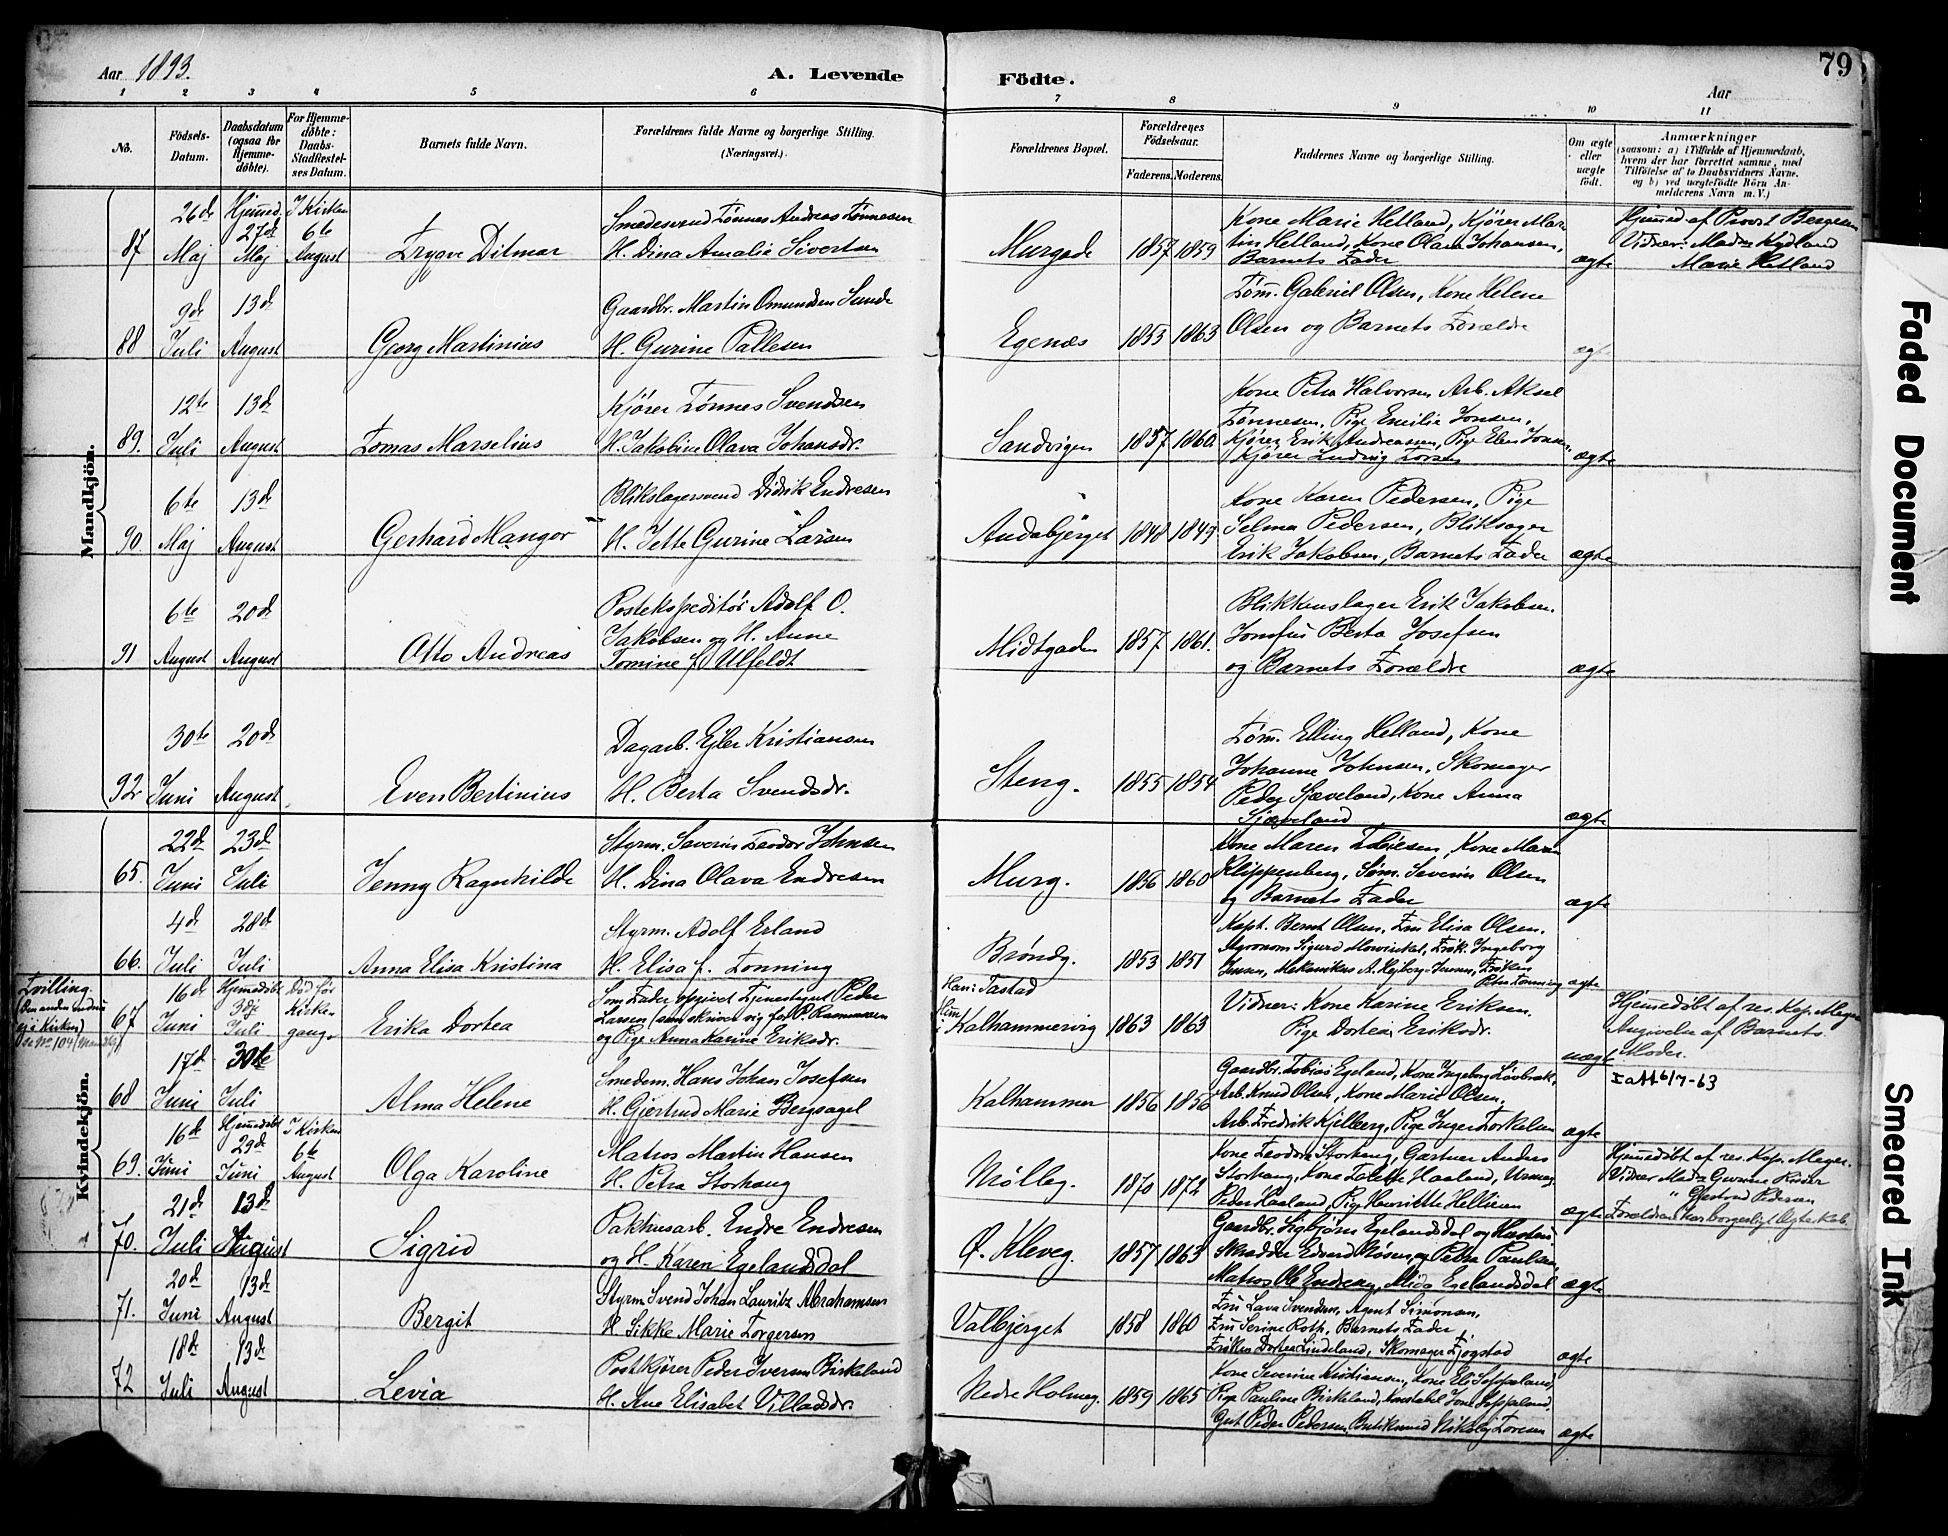 79
Aar 1893.
A. Levende Födte.
Aar
1 2 3 4 5 6 7 8 9 10 11
No.
Födsels-Datum.
Daabsdatum (ogsaa for Hjemme-döbte).
For Hjemme-döbte: Daabs-Stadfæstel-ses Datum.
Barnets fulde Navn.
Forældrenes fulde Navne og borgerlige Stilling.
(Næringsvei.)
Forældrenes Bopæl.
Forældrenes Födselsaar.
Faderens. Moderens.
Faddernes Navne og borgerlige Stilling.
Om ægte eller uægte födt.
Anmærkninger
(saasom: a) i Tilfælde af Hjemmedaab, hvem der har forrettet samme, med Tilföielse af to Daabsvidners Navne. og b) ved uægtefödte Börn Anmelderens Navn m. V.)
Mandkjön.
87 26de Maj Hjemmed. 27de Maj I Kirken 6te August
Trygve Ditmar
Smedesvend Tönnes Andreas Tönnesen
H. Dina Amalie Sivertsen
Murgade 1857 1859
Kone Marie Hetland, Kjörer Mar-
tin Hetland, Kone Olava Johansen,
Barnets Fader
ægte
Hjemmed af Provst Bergesen
Vidner: Madm Kydland
Marie Hetland
88 9de Juli 13de August
Georg Martinius
Gaardbr. Martin Omundsen Sunde
H. Gurine Pallesen
Egenæs 1853 1863
Töm. Gabriel Olsen, Kone Helene
Olsen og Barnets Forældre
ægte
89. 12te Juli 13de August
Tomas Marselius
Kjörer Tönnes Svendsen
H. Jakobine Olava Johansdr.
Sandvigen 1857 1860.
Kone Petra Halvorsen Arb. Aksel
Tönnesen, Pige Emilie Jonsen,
Kjörer Erik Andreassen, Pige Elen Jonsen,
Kjörer Ludvig Torsen
ægte
90. 6te Maj 13de August
Gerhard Mangor
Blikslagersvend Didrik Endresen
H. Jette Gurine Larsen
Andabjerget 1848 1843
Kone Karen Pedersen, Pige
Selma Pedersen, Bliksager
Erik Jakobsen, Barnets Fader
ægte
91 6te August 20de August
Otto Andreas
Postekspeditör Adolf O.
Jakobsen og H. Anne
Tomine f. Ulfeldt
Midtgaden 1857 1861.
Blikkenslager Erik Jakobsen.
Jomfru Berta Josefsen
og Barnets Forældre
ægte
92 30te Juni 20de August
Even Bertinius
Dagarb. Ejler Kristiansen
H. Berta Svendsdr.
Steng. 1855 1854
Töm. Elling Helland, Kone
Johanne Johnsen, Skomager
Peder Sjæveland, Kone Anna
Sjæveland
ægte
Kvindekjön.
65. 22de Juni 23de Juli
Jenny Ragnhilde
Styrm. Severin Teodor Johnsen
H. Dina Olava Endresen
Murg. 1856 1860
Kone Maren Tobiesen, Kone Maren
Klippenberg, Töm. Severin Olsen
og Barnets Fader
ægte
66. 4de Juli 28de Juli
Anna Elisa Kristina
Styrm. Adolf Erland
H. Elisa f. Tonning
Bröndg. 1853 1851
Kapt. Bernt Olsen, Fru Elisa Olsen.
Agronom Sigurd Mowinckel, Frök. Ingeborg
Jensen, Mekanikus A. Hejberg Jensen, Fröken
Petra Tonning
ægte
Tvilling.
67 16de Juni Hjemmedöbt 3dje Juli Död för Kirke-gang.
Erika Dortea
Som Fader opgivet Tjenestegut Peder
Larsen (som skriver sig Lars P. Rasmussen
og Pige Anna Karine Eriksdr.
Han: Tastad
Kalhammervig 1863 1863
Vidner: Kone Karine Eriksen.
Pige Dortea Eriksdr.
uægte
Hjemmedöbt af res. Kap. Meyer
Angivelse af Barnets
Moder.
68 17de Juni 30te Juli
Alma Helene
Smedem. Hans Johan Josefsen
H. Gjertrud Marie Bergsagel
Kalhammer 1856 1856
Gaardbr. Tobias Egeland, Kone Ingeborg Lövbrak,
Arb. Knud Olsen, Kone Marie Olsen,
Arb. Fredrik Kjelberg, Pige Inger Torkelsen
ægte
69. 16de Juni Hjemmedöbt 29de Juni I Kirken 6te August
Olga Karoline
Matros Martin Hansen
H. Petra Storhaug
Mölleg. 1870 1872
Kone Teodora Storhaug, Gartner Anders
Storhaug, Kone Tolette Haaland, Urmag.
Peder Haaland, Pige Henriette Hellisen
ægte
Hjemmedöbt af res. Kap. Meyer.
Vidner Madm Gurine Ridder
" Gjertrud Pedersen
Forældrene har borgerligt Ægteskab.
70. 21de Juli 13de August
Sigrid
Pakhusarb. Endre Endresen
og H. Karen Egelandsdal
Ö. Kleveg. 1857 1863
Gaardbr. Sigbjörn Egelandsdal og Hustru
Skrædder Edvard Rosen og Petra Paulsen
Matros Ole Endresen, Alida Egelandsdal
ægte
71. 20de Juni 13de August
Bergit
Styrm Svend Johan Lauritz Abrahamsen
H Sikke Marie Torgersen
Valbjerget 1858 1860
Fru Lava Svendsen, Agent Simonsen,
Fru Serine Roth, Barnets Fader,
Fröken Dortea Lindeland, Skomager Fjogstad
ægte
72 18de Juli 13de August
Levia
Postkjörer Peder Iversen Birkeland
H. Ane Elisabet Villadsdr.
Nedre Holmeg. 1859 1865
Kone Severine Kristiansen, Kone Eli Soppeland,
Pige Pauline Birkeland, Konstabel Jone Soppeland,
Gut Peder Pedersen, Butiksvend Nikolaj Toresen
ægte
Faded Document
Smeared Ink